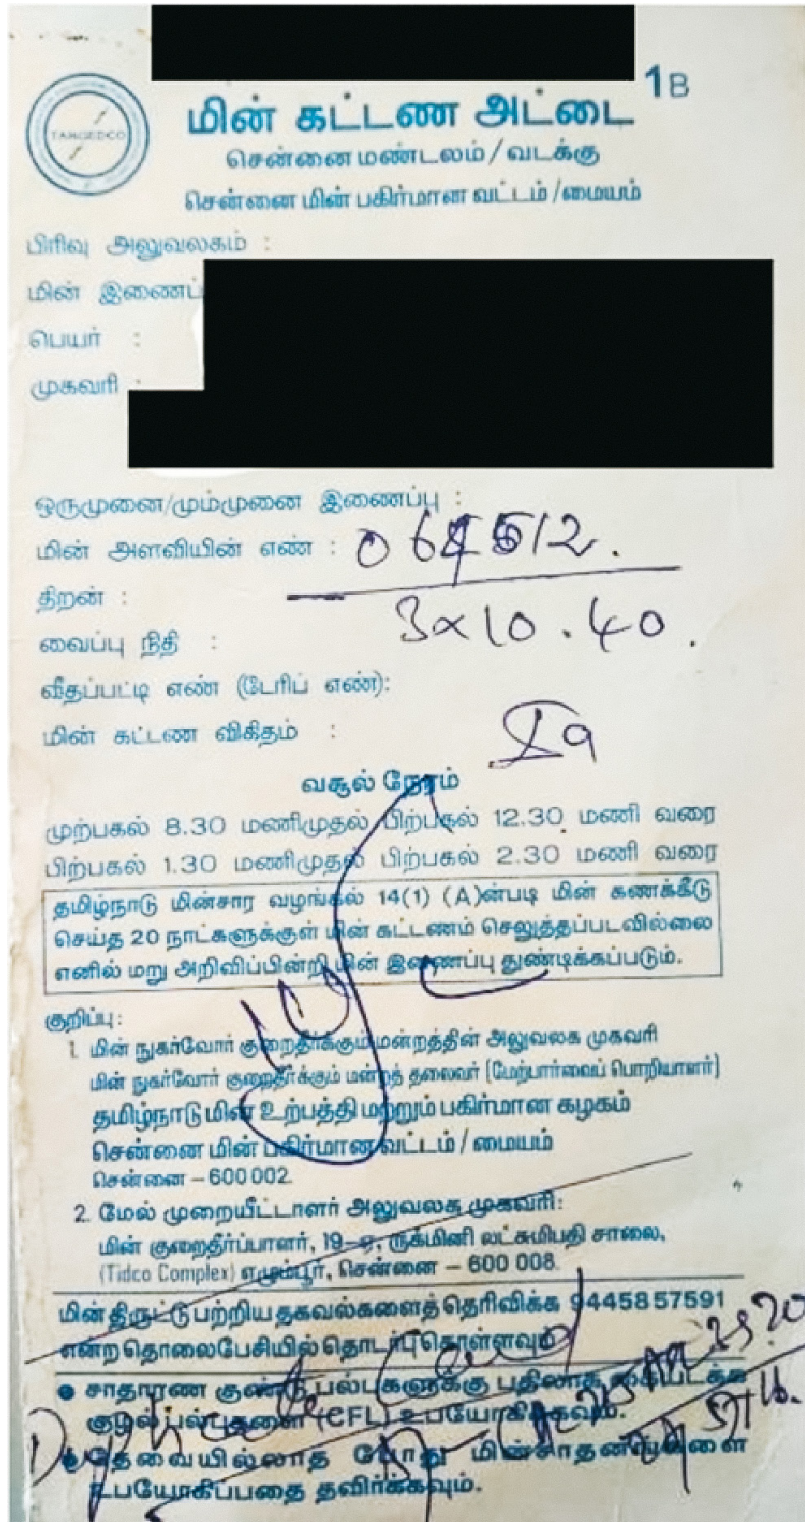 1B
TANGEDCO
மின் கட்டண அட்டை
சென்னை மண்டலம் / வடக்கு
சென்னை மின் பகிர்மான வட்டம் /மையம்
பிரிவு அலுவலகம் :
மின் இணைப்
பெயர் :
முகவரி :
ஒருமுனை/மும்முனை இணைப்பு :
மின் அளவியின் எண் :
திறன் :
3x10.40.
வைப்பு நிதி :
வீதப்பட்டி எண் (டேரிப் எண்):
மின் கட்டண விகிதம் : Ia
வசூல் நேரம்
முற்பகல் 8.30 மணிமுதல் பிற்பகல் 12.30 மணி வரை
பிற்பகல் 1.30 மணிமுதல் பிற்பகல் 2.30 மணி வரை
தமிழ்நாடு மின்சார வழங்கல் 14(1) (A)ன்படி மின் கணக்கீடு
செய்த 20 நாட்களுக்குள் மின் கட்டணம் செலுத்தப்படவில்லை
எனில் மறு அறிவிப்பின்றி மின் இணைப்பு துண்டிக்கப்படும்.
குறிப்பு:
1. மின் நுகர்வோர் குறைதீர்க்கும் மன்றத்தின் அலுவலக முகவரி
மின் நுகர்வோர் குறைதீர்க்கும் மன்றத் தலைவர் (மேற்பார்வைப் பொறியாளர்)
தமிழ்நாடு மின் உற்பத்தி மற்றும் பகிர்மான கழகம்
சென்னை மின் பகிர்மான வட்டம் / மையம்
சென்னை – 600 002.
2. மேல் முறையீட்டாளர் அலுவலக முகவரி:
மின் குறைதீர்ப்பாளர், 19–ஏ, ருக்மினி லட்சுமிபதி சாலை,
(Tidco Complex) எழும்பூர், சென்னை – 600 008.
மின் திருட்டு பற்றிய தகவல்களைத் தெரிவிக்க 94458 57591
என்ற தொலைபேசியில் தொடர்பு கொள்ளவும்
● சாதாரண குண்டு பல்புகளுக்கு பதிலாக கைபடக்க
குழல் பல்புகளை (CFL) உபயோகிக்கவும்.
Duplicate Card
● தேவையில்லாத போது மின்சாதனங்களை
உபயோகிப்பதை தவிர்க்கவும்.